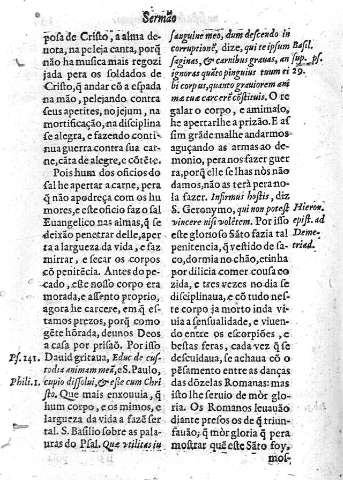 Sermão
posa de Cristo, a alma de-
nota, na peleja canta, porq̃
não ha musica mais regozi
jada pera os soldados de
Cristo, q̃ andar cõ a espada
na mão, pelejando contra
seus apetites, no jejum, na
mortificação, na disciplina
se alegra, e fazendo conti-
nua guerra contra sua car-
ne, cãta de alegre, e cõtẽte.
Pois hum dos oficios do
sal he apertar a carne, pera
q̃ não apodreça com os hu
mores, e este oficio faz o sal
Euangelico nas almas, q̃ se
deixão penetrar delle, aper
ta a largueza da vida, e faz
mirrar, e secar os corpos
cõ penitẽcia. Antes do pe-
cado, este nosso corpo era
morada, e assento proprio,
agora he carcere, em q̃ es-
tamos prezos, porq̃ como
gẽte hõrada, deunos Deos
a casa por prisão. Por isso
Ps. 141. Dauid gritaua, Educ de cus-
todia animam meã, e S. Paulo,
Phili. 1. cupio dissolui, & esse cum Chri
sto. Que mais enxouuia, q̃
hum corpo, e os mimos, e
largueza da vida a fazẽ ser
tal. S. Basilio sobre as pala-
uras do Psal. Quæ vtilitas in
sanguine meo, dum descendo in
corruptionẽ, dize, qui te ipsum
Basil.
saginas, & carnibus grauas, an
sup. ps.
ignoras quãto pinguius tuum ei
29.
bi corpus, quanto grauiorem ani
mæ tuæ carcerẽ cõstituis. O re
galar o corpo, e amimalo,
he apertarlhe a prizão. E as
sim grãde mal he andarmos
aguçando as armas ao de-
monio, pera nos fazer guer
ra, porq̃ elle se lhas nòs não
damos, não as terà pera no-
la fazer. Infirmus hostis, diz
S. Geronymo, qui non potest
Hieron.
vincere nisi volẽtem. Por isso
epist. ad
este glorioso Sãto fazia tal
Deme-
penitencia, q̃ vestido de sa-
triad.
co, dormia no chão, etinha
por dilicia comer cousa co
zida, e tres vezes no dia se
disciplinaua, e cõ tudo nes-
te corpo ja morto inda vi-
uia a sensualidade, e viuen-
do entre os escorpiões, e
bestas feras, cada vez q̃ se
descuidaua, se achaua cõ o
pẽsamento entre as danças
das dõzelas Romanas: mas
isto lhe seruio de mòr glo-
ria. Os Romanos leuauão
diante presos os de q̃ triun-
fauão, q̃ mòr gloria q̃ pera
mostrar que este Sãto foy,
mos-